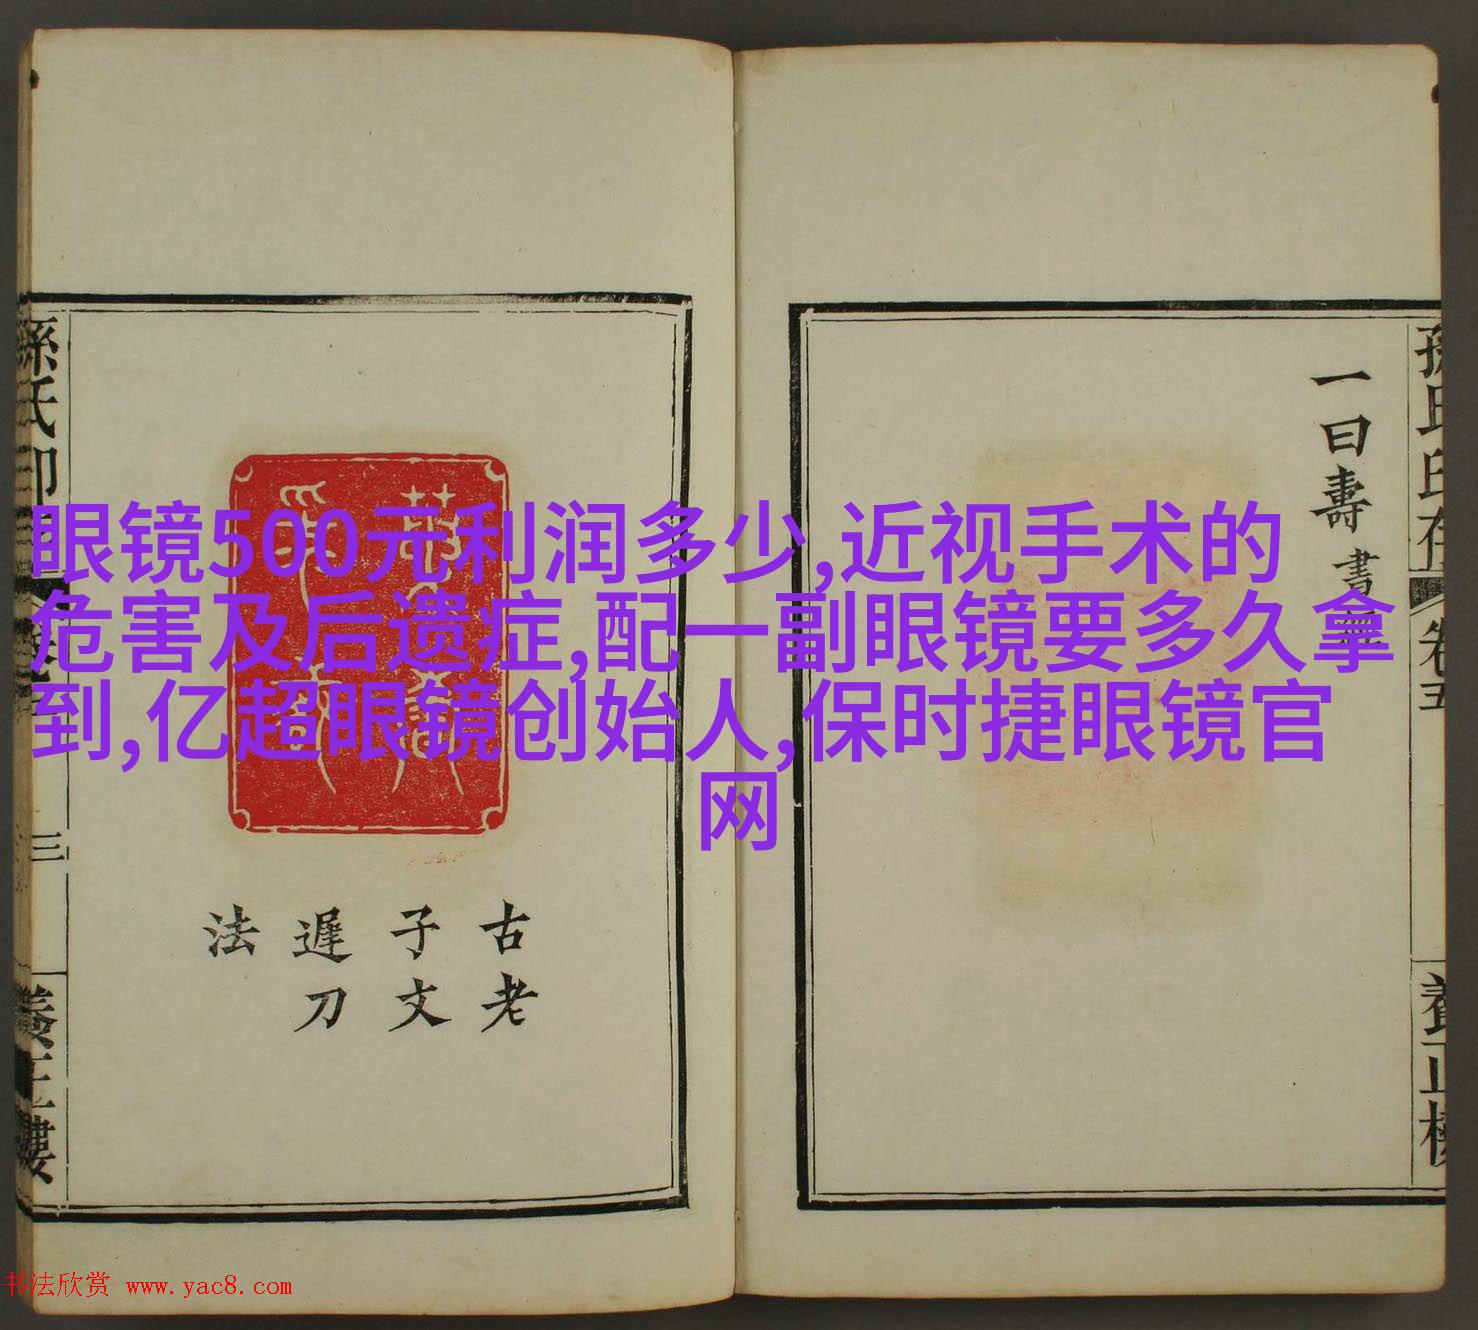 眼镜500元利润多少,近视手术的
危害及后遗症,配一副眼镜要多久拿
到,亿超眼镜创始人,保时捷眼镜官
网
一曰壽
書
卷五
養正樓
孫氏印
三
養正樓
古老
子文
遲刀
法
书法欣赏 www.yac8.com